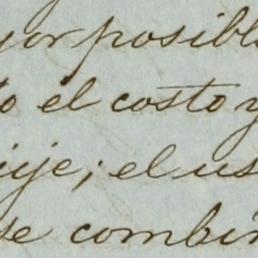 yor posibl
to el costo y
uje; el us
se combin